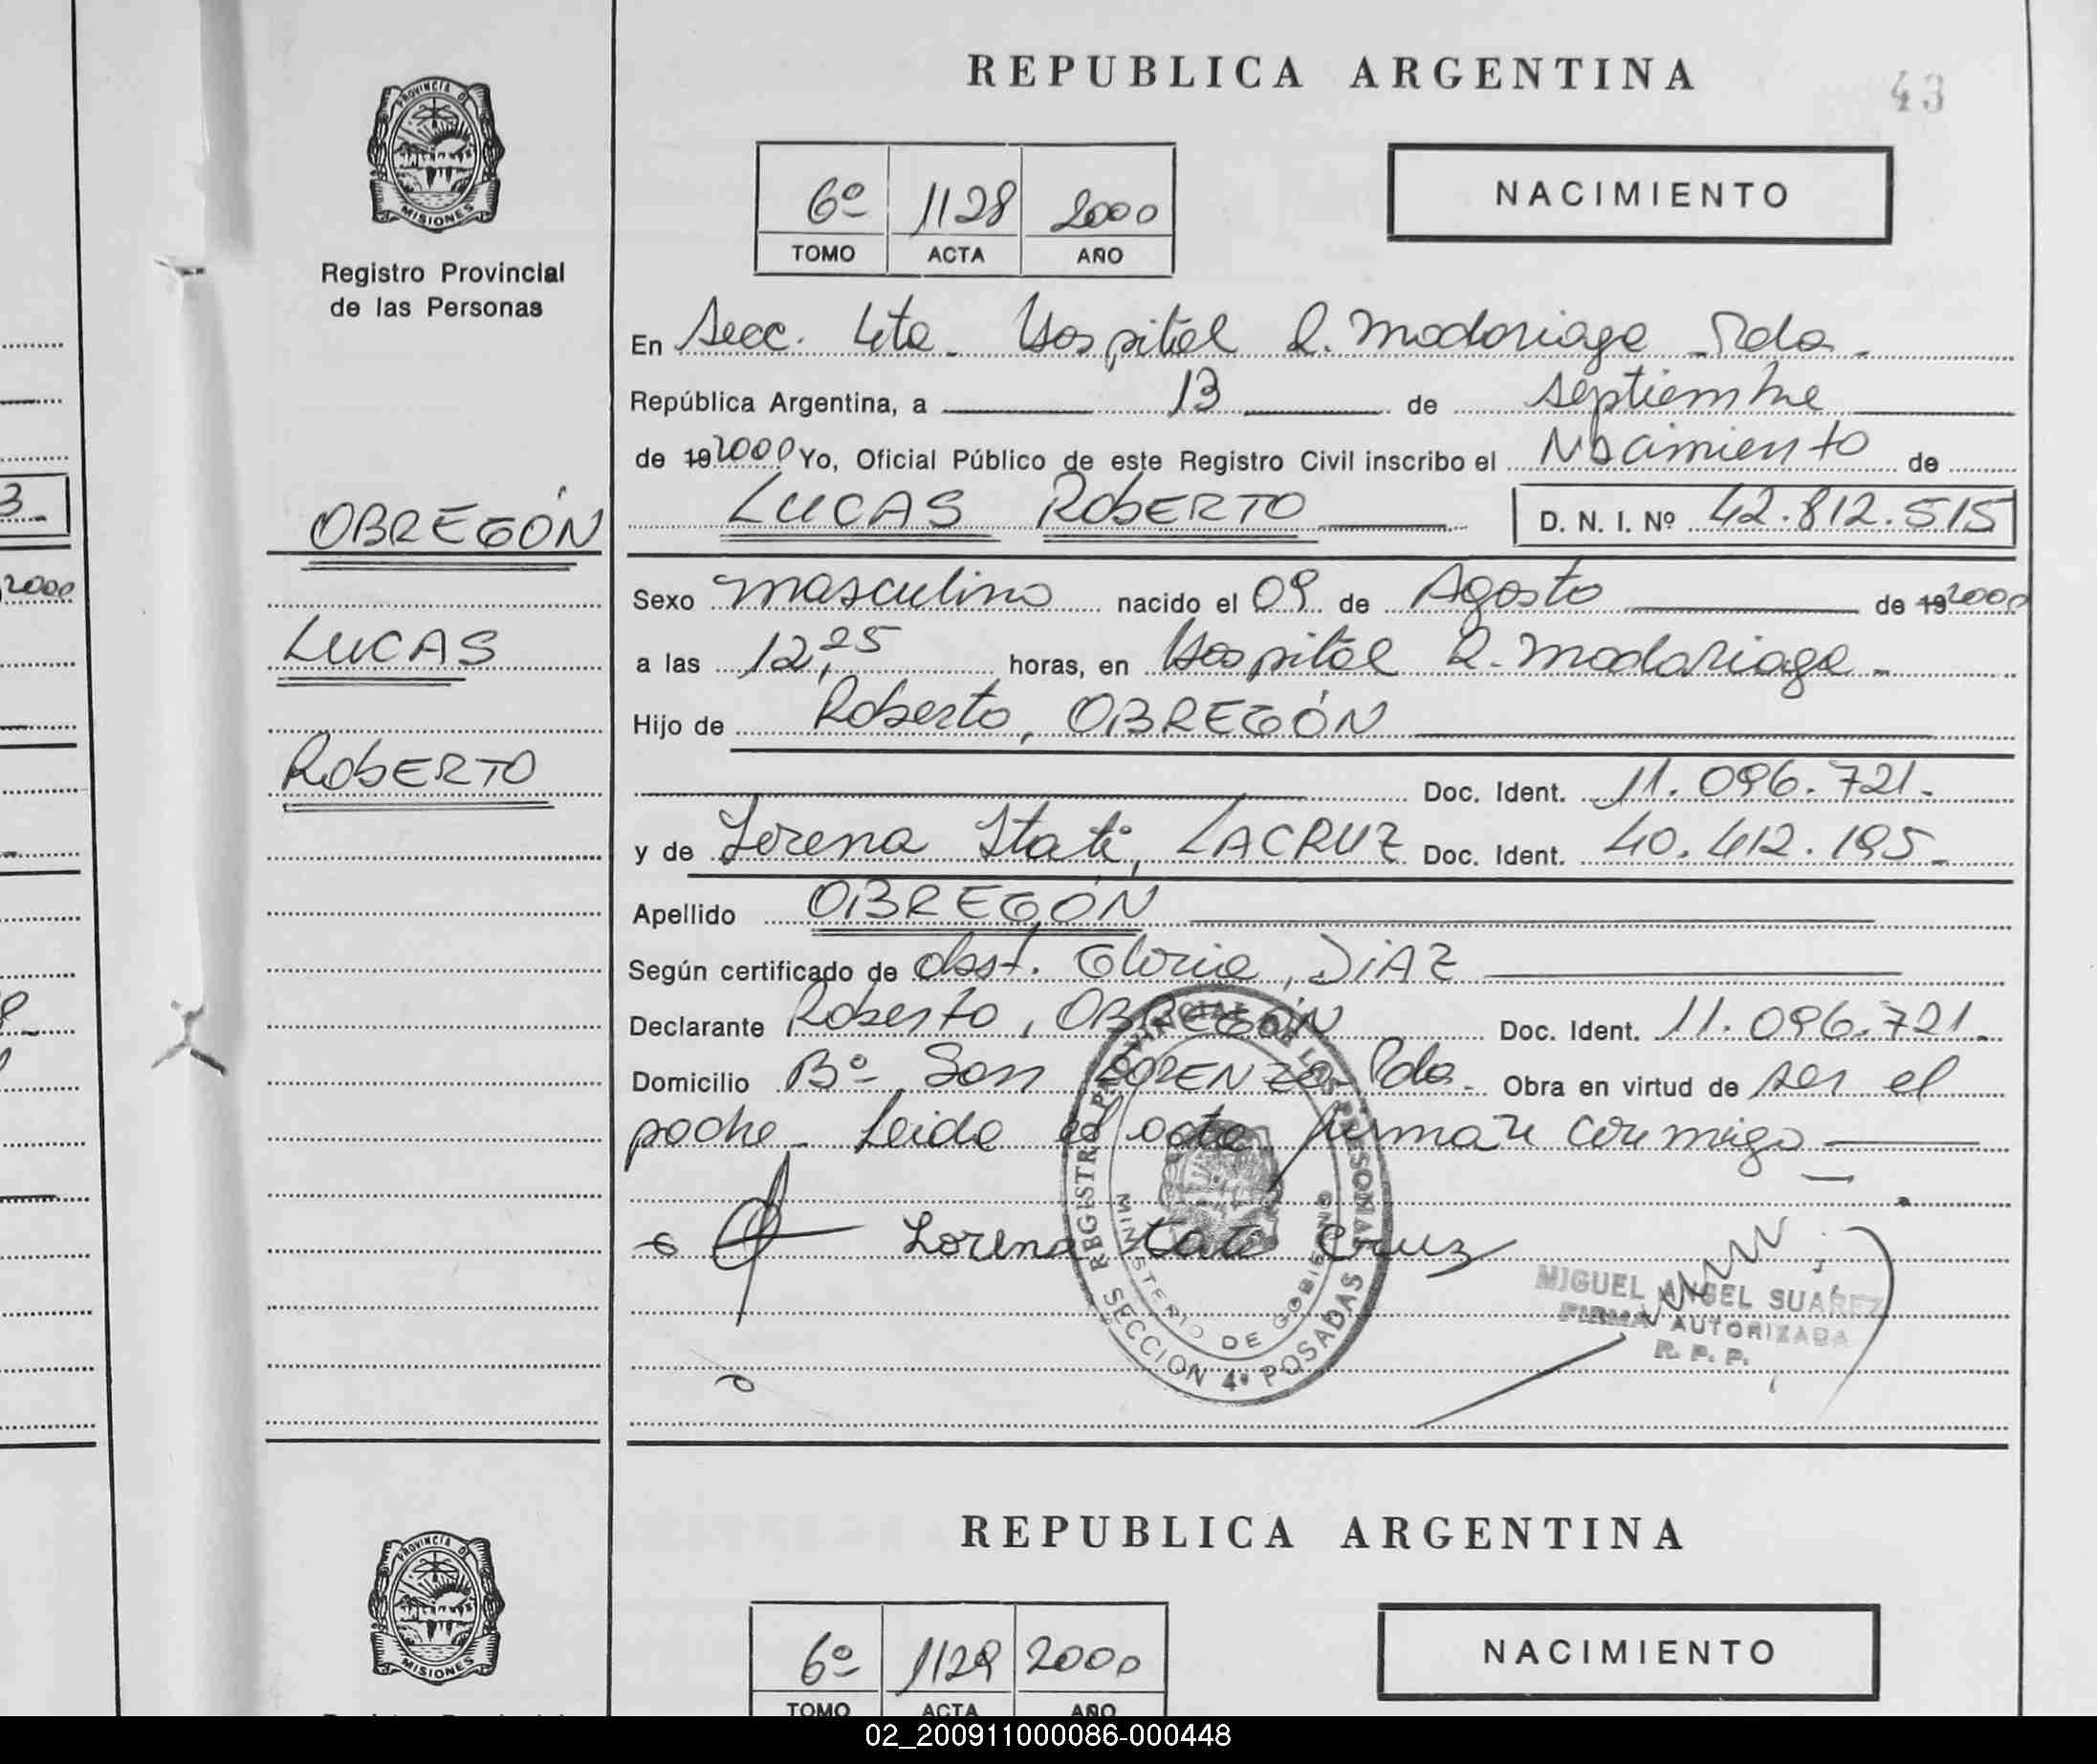 REPUBLICA ARGENTINA
43
PROVINCIA DE
MISIONES
Registro Provincial
de las Personas
6º 1128 2000
TOMO ACTA AÑO
NACIMIENTO
En Secc. 4ta. Hospital R. Madariaga Pdas.
República Argentina, a 13 de septiembre
de 192000 Yo, Oficial Público de este Registro Civil inscribo el Nacimiento de
LUCAS ROBERTO D. N. I. Nº 42.812.515
OBREGÓN
LUCAS
ROBERTO
Sexo masculino nacido el 09 de Agosto de 192000
a las 12,25 horas, en Hospital R. Madariaga.
Hijo de Roberto, OBREGÓN
Doc. Ident. 11.096.721.
y de Lorena Itati, LACRUZ Doc. Ident. 40.412.195.
Apellido OBREGÓN
Según certificado de obst. Gloria, DiAZ
Declarante Roberto, OBREGÓN Doc. Ident. 11.096.721.
Domicilio Bº San LORENZO Pdas. Obra en virtud de ser el
padre. Leida el acta firman conmigo
Lorena Itati Cruz
REGISTRO PROVINCIAL DE LAS PERSONAS
MINISTERIO DE GOBIERNO
SECCION 4ª POSADAS
MIGUEL ANGEL SUAREZ
FIRMA AUTORIZADA
R. P. P.
3
2000
REPUBLICA ARGENTINA
PROVINCIA DE
MISIONES
6º 1129 2000
TOMO ACTA AÑO
NACIMIENTO
02_200911000086-000448